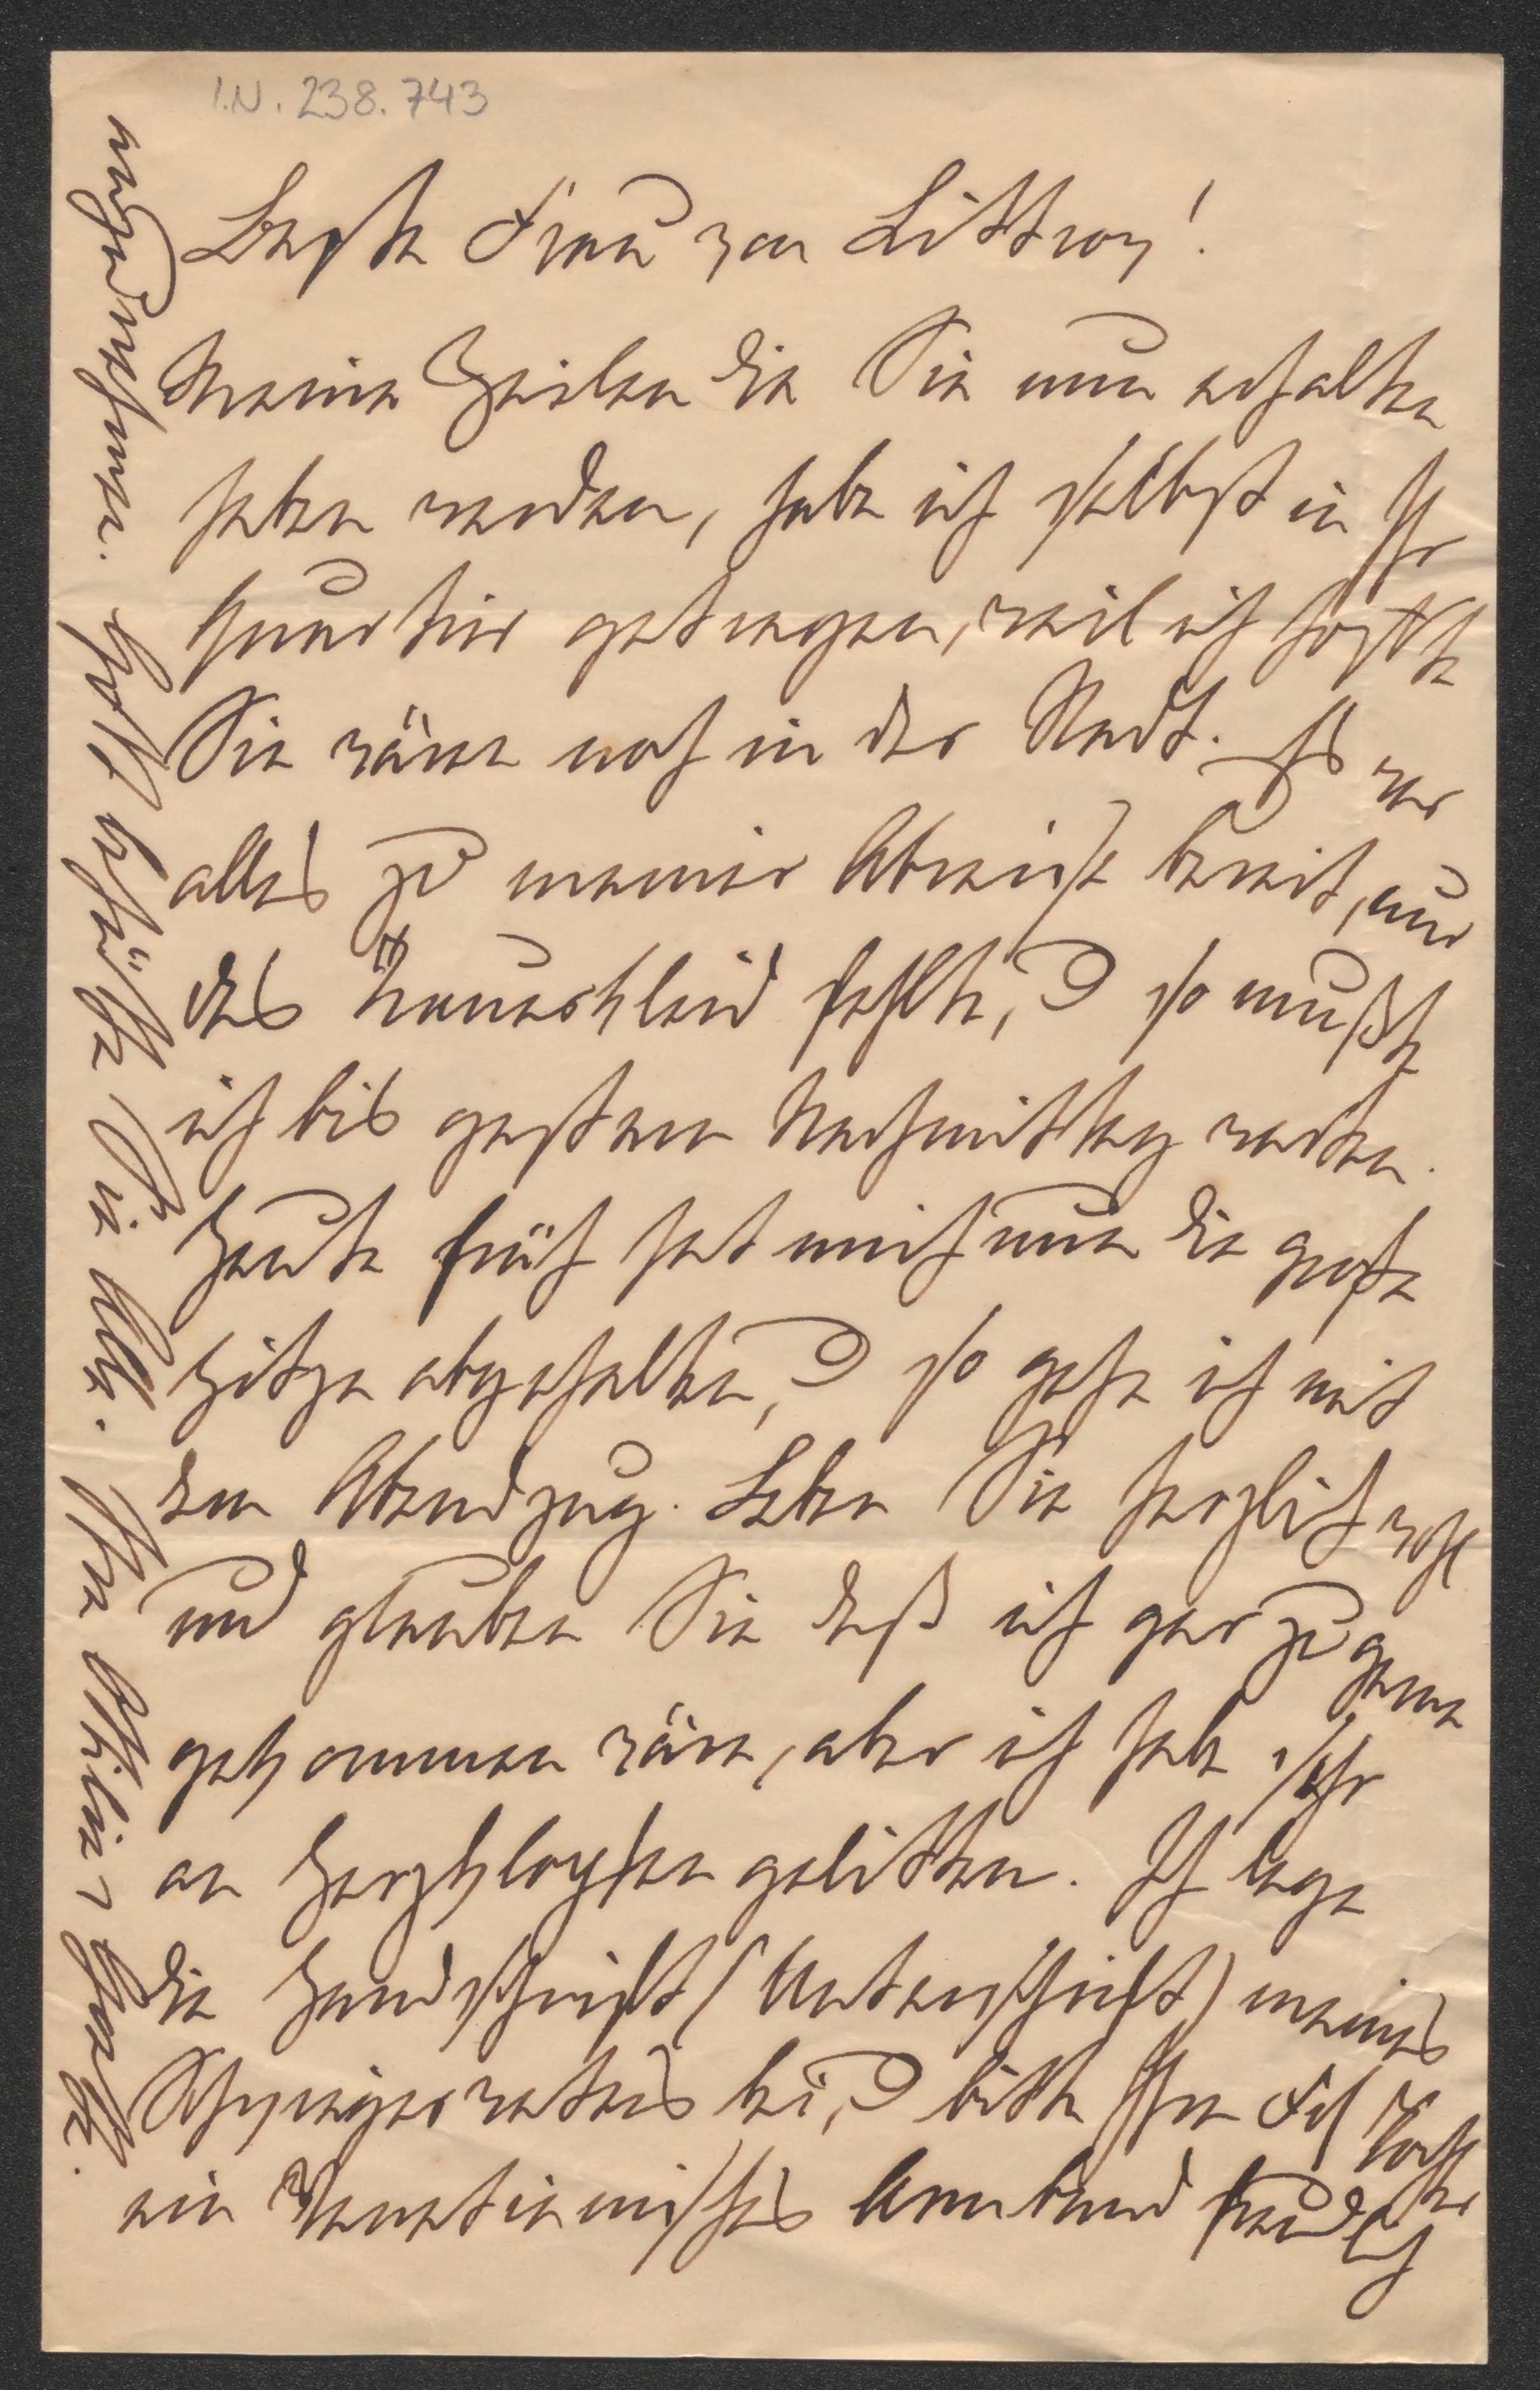 I.N. 238.743
Beste Frau von Littrow!
Meine Zeilen die Sie nun erhalten
haben werden, habe ich selbst in Ihr
Quartier getragen, weil ich hoffte
Sie wären noch in der Stadt. Es war
alles zu meiner Abreise bereit, nur
das Trauerkleid fehlte, u so mußte
ich bis gestern Nachmittag warten.
Heute früh hat mich nun die große
Hitze abgehalten, u so gehe ich mit
den Abendzug. Leben Sie herzlich wohl
und glauben Sie daß ich gar zu gerne
gekommen wäre, aber ich habe sehr
an Herzklopfen gelitten. Ich lege
die Handschrift (Unterschrift) meines
Schwiegervaters bei, u bitte Ihre Frl Tochter
ein Venetianisches Armband freundlich
anzunehmen. Gott behüte Sie Alle. Ihre Ottilie v Goethe.